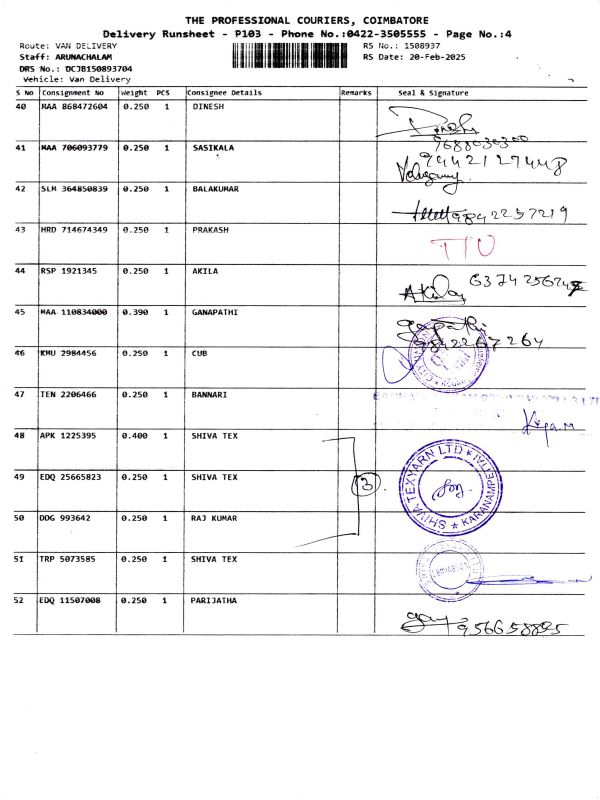 THE PROFESSIONAL COURIERS, COIMBATORE
Delivery Runsheet - P103 - Phone No.:0422-3505555 - Page No.:4
Route: VAN DELIVERY RS No.: 1508937
Staff: ARUNACHALAM RS Date: 20-Feb-2025
DRS No.: DCJB150893704
Vehicle: Van Delivery
S No Consignment No Weight PCS Consignee Details Remarks Seal & Signature
40 MAA 868472604 0.250 1 DINESH Dinesh
9688030300
41 MAA 706093779 0.250 1 SASIKALA 9442127448
42 SLM 364850839 0.250 1 BALAKUMAR 9842257219
43 HRD 714674349 0.250 1 PRAKASH
44 RSP 1921345 0.250 1 AKILA Akila
45 MAA 110834000 0.390 1 GANAPATHI Ganapathi
9842267264
46 KMU 2984456 0.250 1 CUB
47 IEN 2206466 0.250 1 BANNARI
48 APK 1225395 0.400 1 SHIVA TEX
49 EDQ 25665823 0.250 1 SHIVA TEX 3 SHIVA TEXYARN LTD ★ KARANAMPETTAI ★
50 DDG 993642 0.250 1 RAJ KUMAR
51 TRP 5073585 0.250 1 SHIVA TEX
52 EDQ 11507008 0.250 1 PARIJATHA